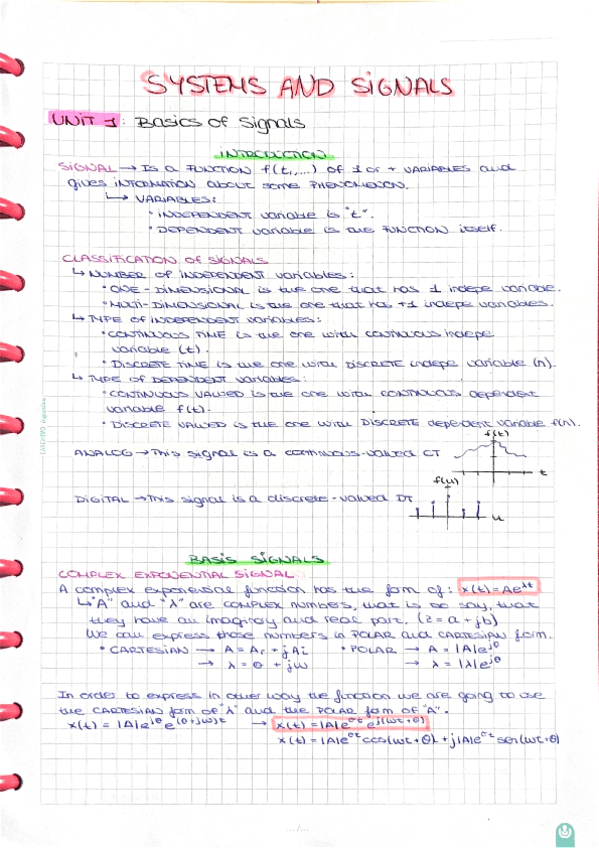 SYSTEMS AND SIGNALS
UNIT 1: Basics of Signals
INTRODUCTION
SIGNAL → Is a FUNCTION f(t,...) of 1 or + VARIABLES and
gives INFORMATION about some PHENOMENON.
↳ VARIABLES:
• INDEPENDENT variable is "t".
• DEPENDENT variable is the FUNCTION itself.
CLASSIFICATION OF SIGNALS
↳ NUMBER of INDEPENDENT variables:
• ONE-DIMENSIONAL is the one that has 1 indepe variable.
• MULTI-DIMENSIONAL is the one that has +1 indepe variables.
↳ TYPE of INDEPENDENT variables:
• CONTINUOUS TIME is the one with CONTINUOUS indepe
variable (t).
• DISCRETE TIME is the one with DISCRETE indepe variable (n).
↳ TYPE of DEPENDENT variables:
• CONTINUOUS VALUED is the one with CONTINUOUS dependent
variable f(t).
• DISCRETE VALUED is the one with DISCRETE dependent variable f(n).
f(t)
ANALOG → This signal is a continuous-valued CT
t
f(n)
DIGITAL → This signal is a discrete-valued DT
n
BASIS SIGNALS
COMPLEX EXPONENTIAL SIGNAL
A complex exponential function has the form of: x(t)=Ae^λt
↳ "A" and "λ" are COMPLEX numbers, that is to say, that
they have an imaginary and real part. (z = a + jb)
We can express those numbers in POLAR and CARTESIAN form.
• CARTESIAN → A = Ar + jAi • POLAR → A = |A|e^jθ
→ λ = σ + jω → λ = |λ|e^jθ
In order to express in other way the function we are going to use
the CARTESIAN form of "λ" and the POLAR form of "A".
x(t) = |A|e^jθ e^(σ+jω)t → x(t) = |A|e^σt e^j(ωt+θ)
x(t) = |A|e^σt cos(ωt+θ) + j|A|e^σt sen(ωt+θ)